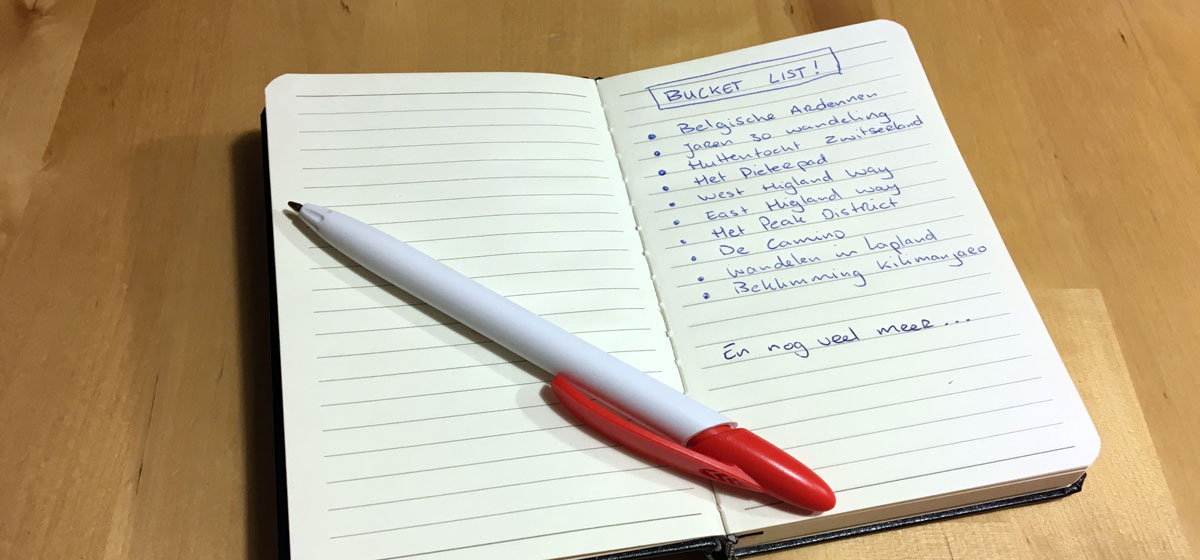 BUCKET LIST!
• Belgische Ardennen
• Jaren 30 wandeling
• Huttentocht Zwitserland
• Het Pieterpad
• West Higland Way
• East Higland way
• Het Peak District
• De Camino
• Wandelen in Lapland
• Beklimming Kilimanjaro
En nog veel meer...